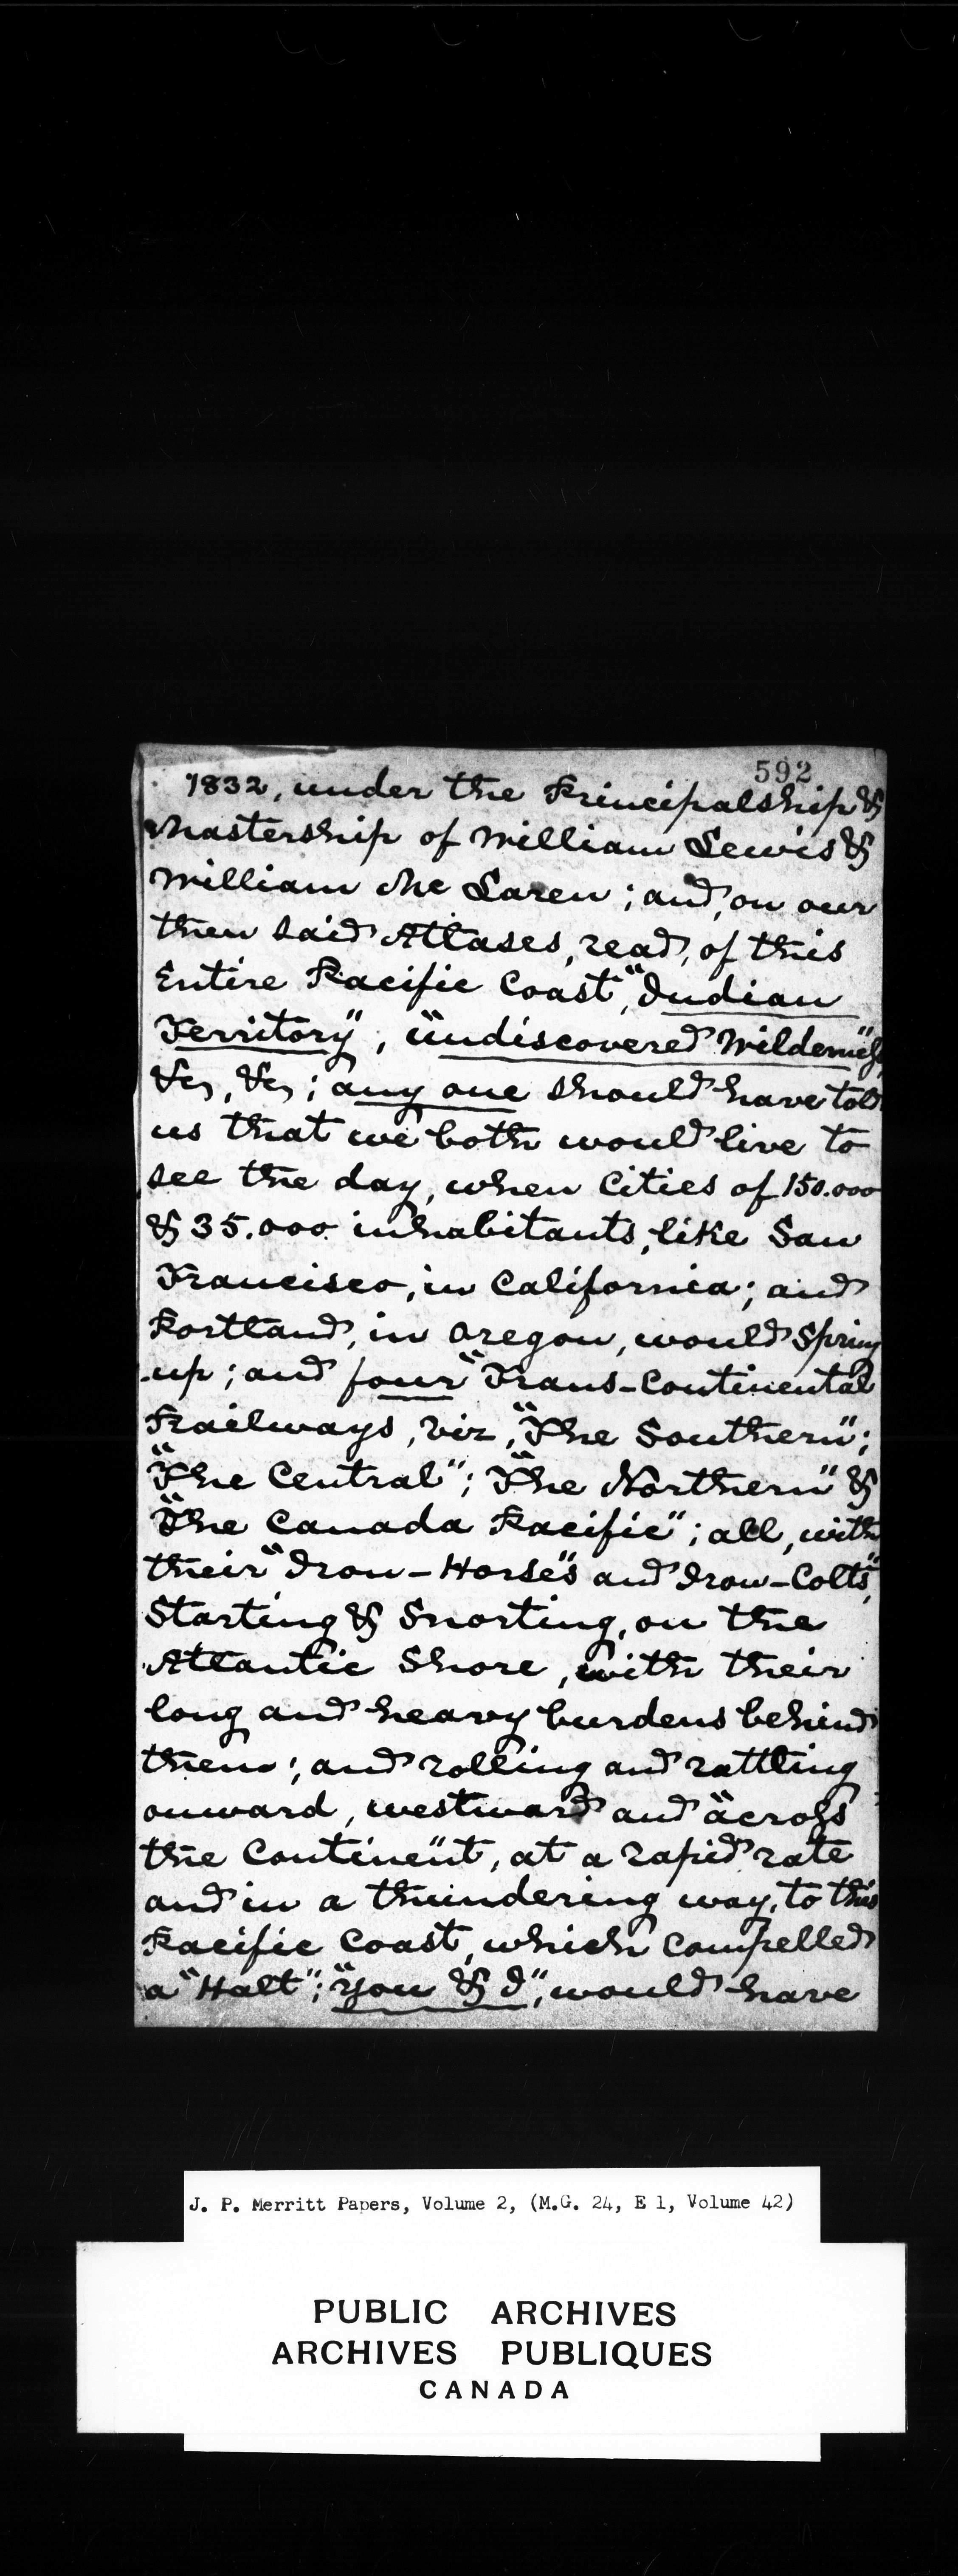 592
1832, under the Principalship &
Mastership of William Lewis &
William Mc Laren; and, on our
then said Atlases, read, of this
Entire Pacific Coast, "Indian
Territory", "undiscovered Wilderness",
&c, &c; any one should have told
us that we both would live to
see the day, when Cities of 150.000
& 35.000 inhabitants, like San
Francisco, in California; and
Portland, in Oregon, would Spring
up; and four "Trans-Continental
Railways, viz, "The Southern";
"The Central"; "The Northern" &
"The Canada Pacific"; all, with
their "Iron-Horses" and Iron-Colts",
Starting & Snorting, on the
Atlantic Shore, with their
long and heavy burdens behind
them; and rolling and rattling
onward, westward and "across
the Continent", at a rapid rate
and in a thundering way, to this
Pacific Coast, which Compelled
a "Halt"; "You & I", would have
J. P. Merritt Papers, Volume 2, (M.G. 24, E 1, Volume 42)
PUBLIC ARCHIVES
ARCHIVES PUBLIQUES
CANADA